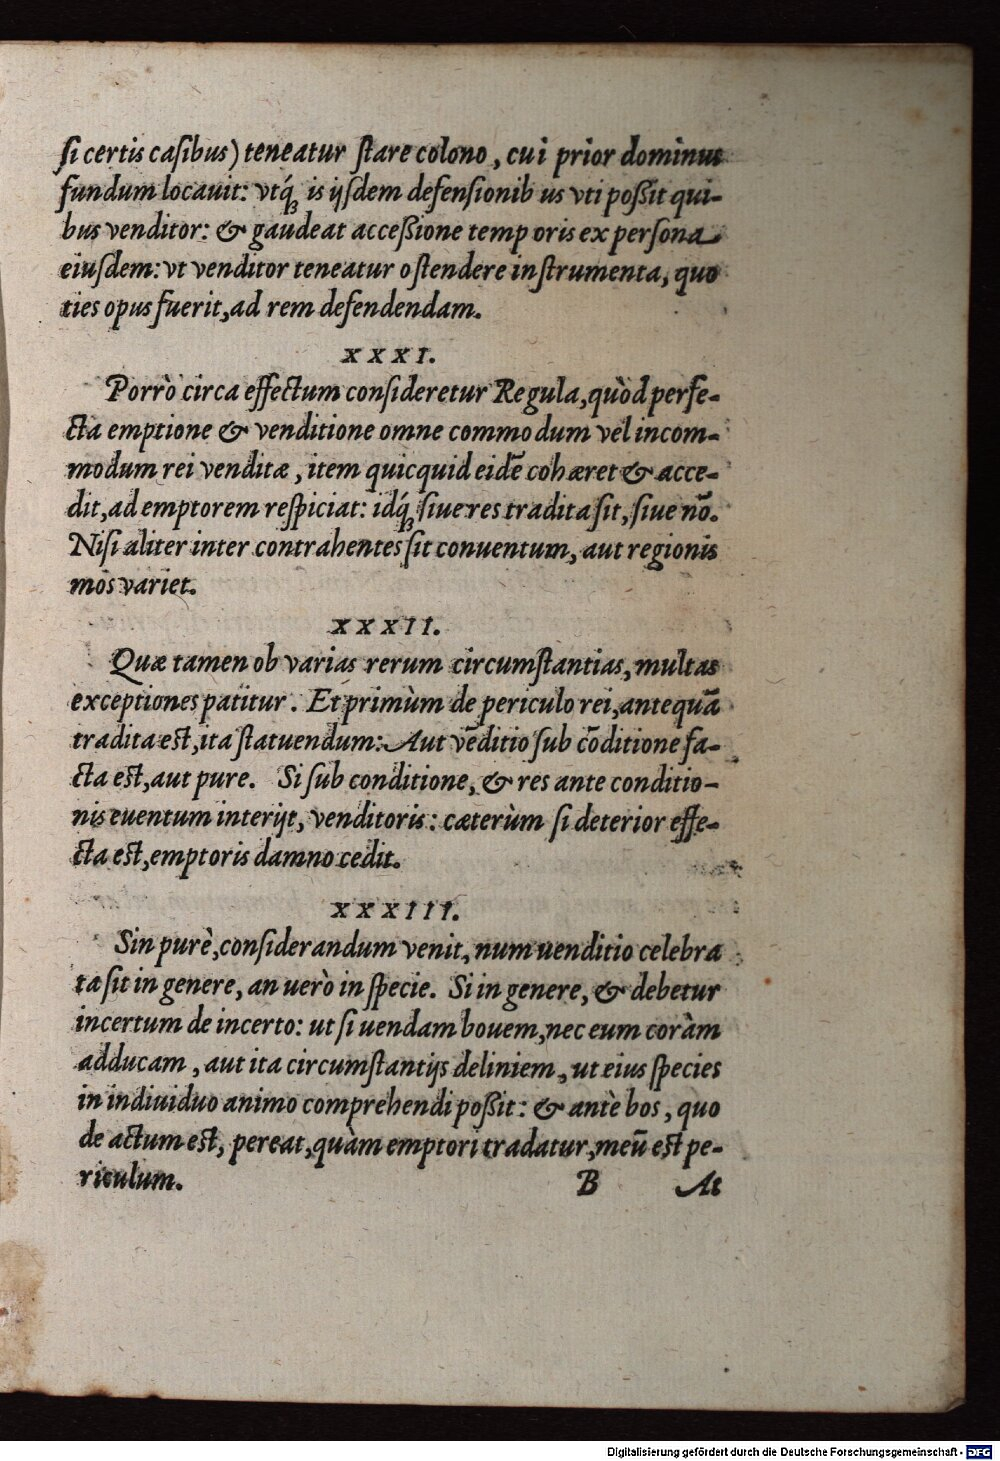 ſi certis caſibus) teneatur ſtare colono, cui prior dominus
fundum locauit: vtq́ꝫ is ijſdem defenſionib us vti poßit qui-
bus venditor: & gaudeat acceßione temp oris ex perſona
eiuſdem: vt venditor teneatur oſtendere inſtrumenta, quo
ties opus fuerit, ad rem defendendam.
XXXI.
Porrò circa effectum conſideretur Regula, quòd perfe-
cta emptione & venditione omne commo dum vel incom-
modum rei venditæ, item quicquid eidē cohæret & acce-
dit, ad emptorem reſpiciat: idq́ꝫ ſiue res tradita ſit, ſiue nō.
Niſi aliter inter contrahentes ſit conuentum, aut regionis
mos variet.
XXXII.
Quæ tamen ob varias rerum circumſtantias, multas
exceptiones patitur. Et primùm de periculo rei, antequā
tradita est, ita ſtatuendum: Aut vēditio ſub cōditione fa-
cta est, aut pure. Si ſub conditione, & res ante conditio-
nis euentum interijt, venditoris: cæterùm ſi deterior effe-
cta est, emptoris damno cedit.
XXXIII.
Sin purè, conſiderandum venit, num uenditio celebra
ta ſit in genere, an uerò in ſpecie. Si in genere, & debetur
incertum de incerto: ut ſi uendam bouem, nec eum coràm
adducam, aut ita circumſtantijs deliniem, ut eius ſpecies
in indiuiduo animo comprehendi poßit: & antè bos, quo
de actum est, pereat, quàm emptori tradatur, meū est pe-
riculum.
B At
Digitalisierung gefördert durch die Deutsche Forschungsgemeinschaft - DFG